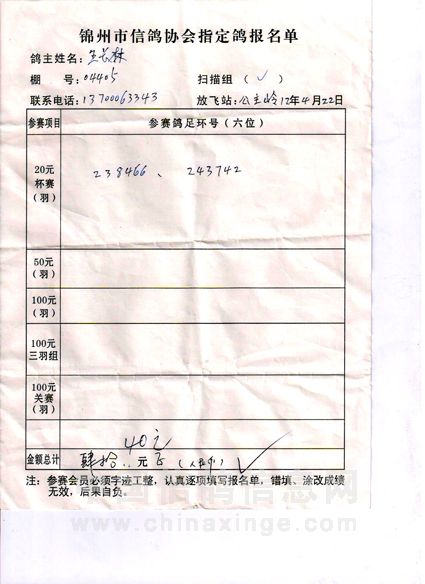 锦州市信鸽协会指定鸽报名单
鸽主姓名：王长林
棚　号：04405　扫描组（✓）
联系电话：13700063343　放飞站：公主岭12年4月22日
参赛项目　参赛鸽足环号（六位）
20元
杯赛
（羽）
238466、243742
50元
（羽）
100元
（羽）
100元
三羽组
100元
关赛
（羽）
40元
金额总计　肆拾..元正（人民币）✓
注：参赛会员必须字迹工整，认真逐项填写报名单，错填、涂改成绩
无效，后果自负。
中国信鸽信息网
www.chinaxinge.com